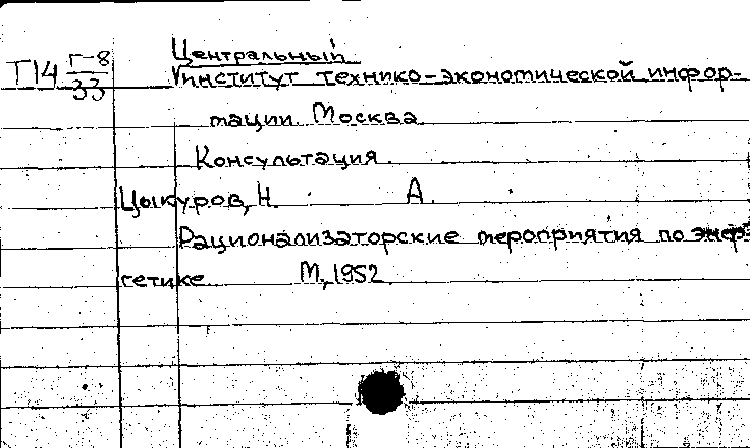 Центральный
Т14 Г-8/33 Институт технико-экономической инфор-
мации. Москва
Консультация.
Цыкуров, Н. А.
Рационализаторские мероприятия по энер-
гетике М, 1952